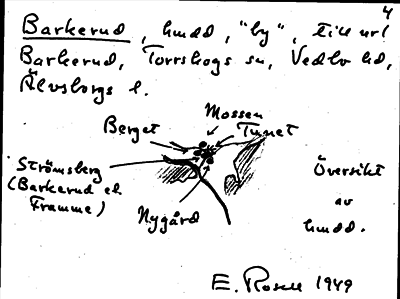 4
Barkerud, hmdd, "by", till url
Barkerud, Torrskogs sn, Vedbo hd,
Älvsborgs l.
Mossen
Berget
Tunet
Strömsberg
(Barkerud el.
Framme)
Nygård
Översikt
av
hmdd.
E. Rosell 1949